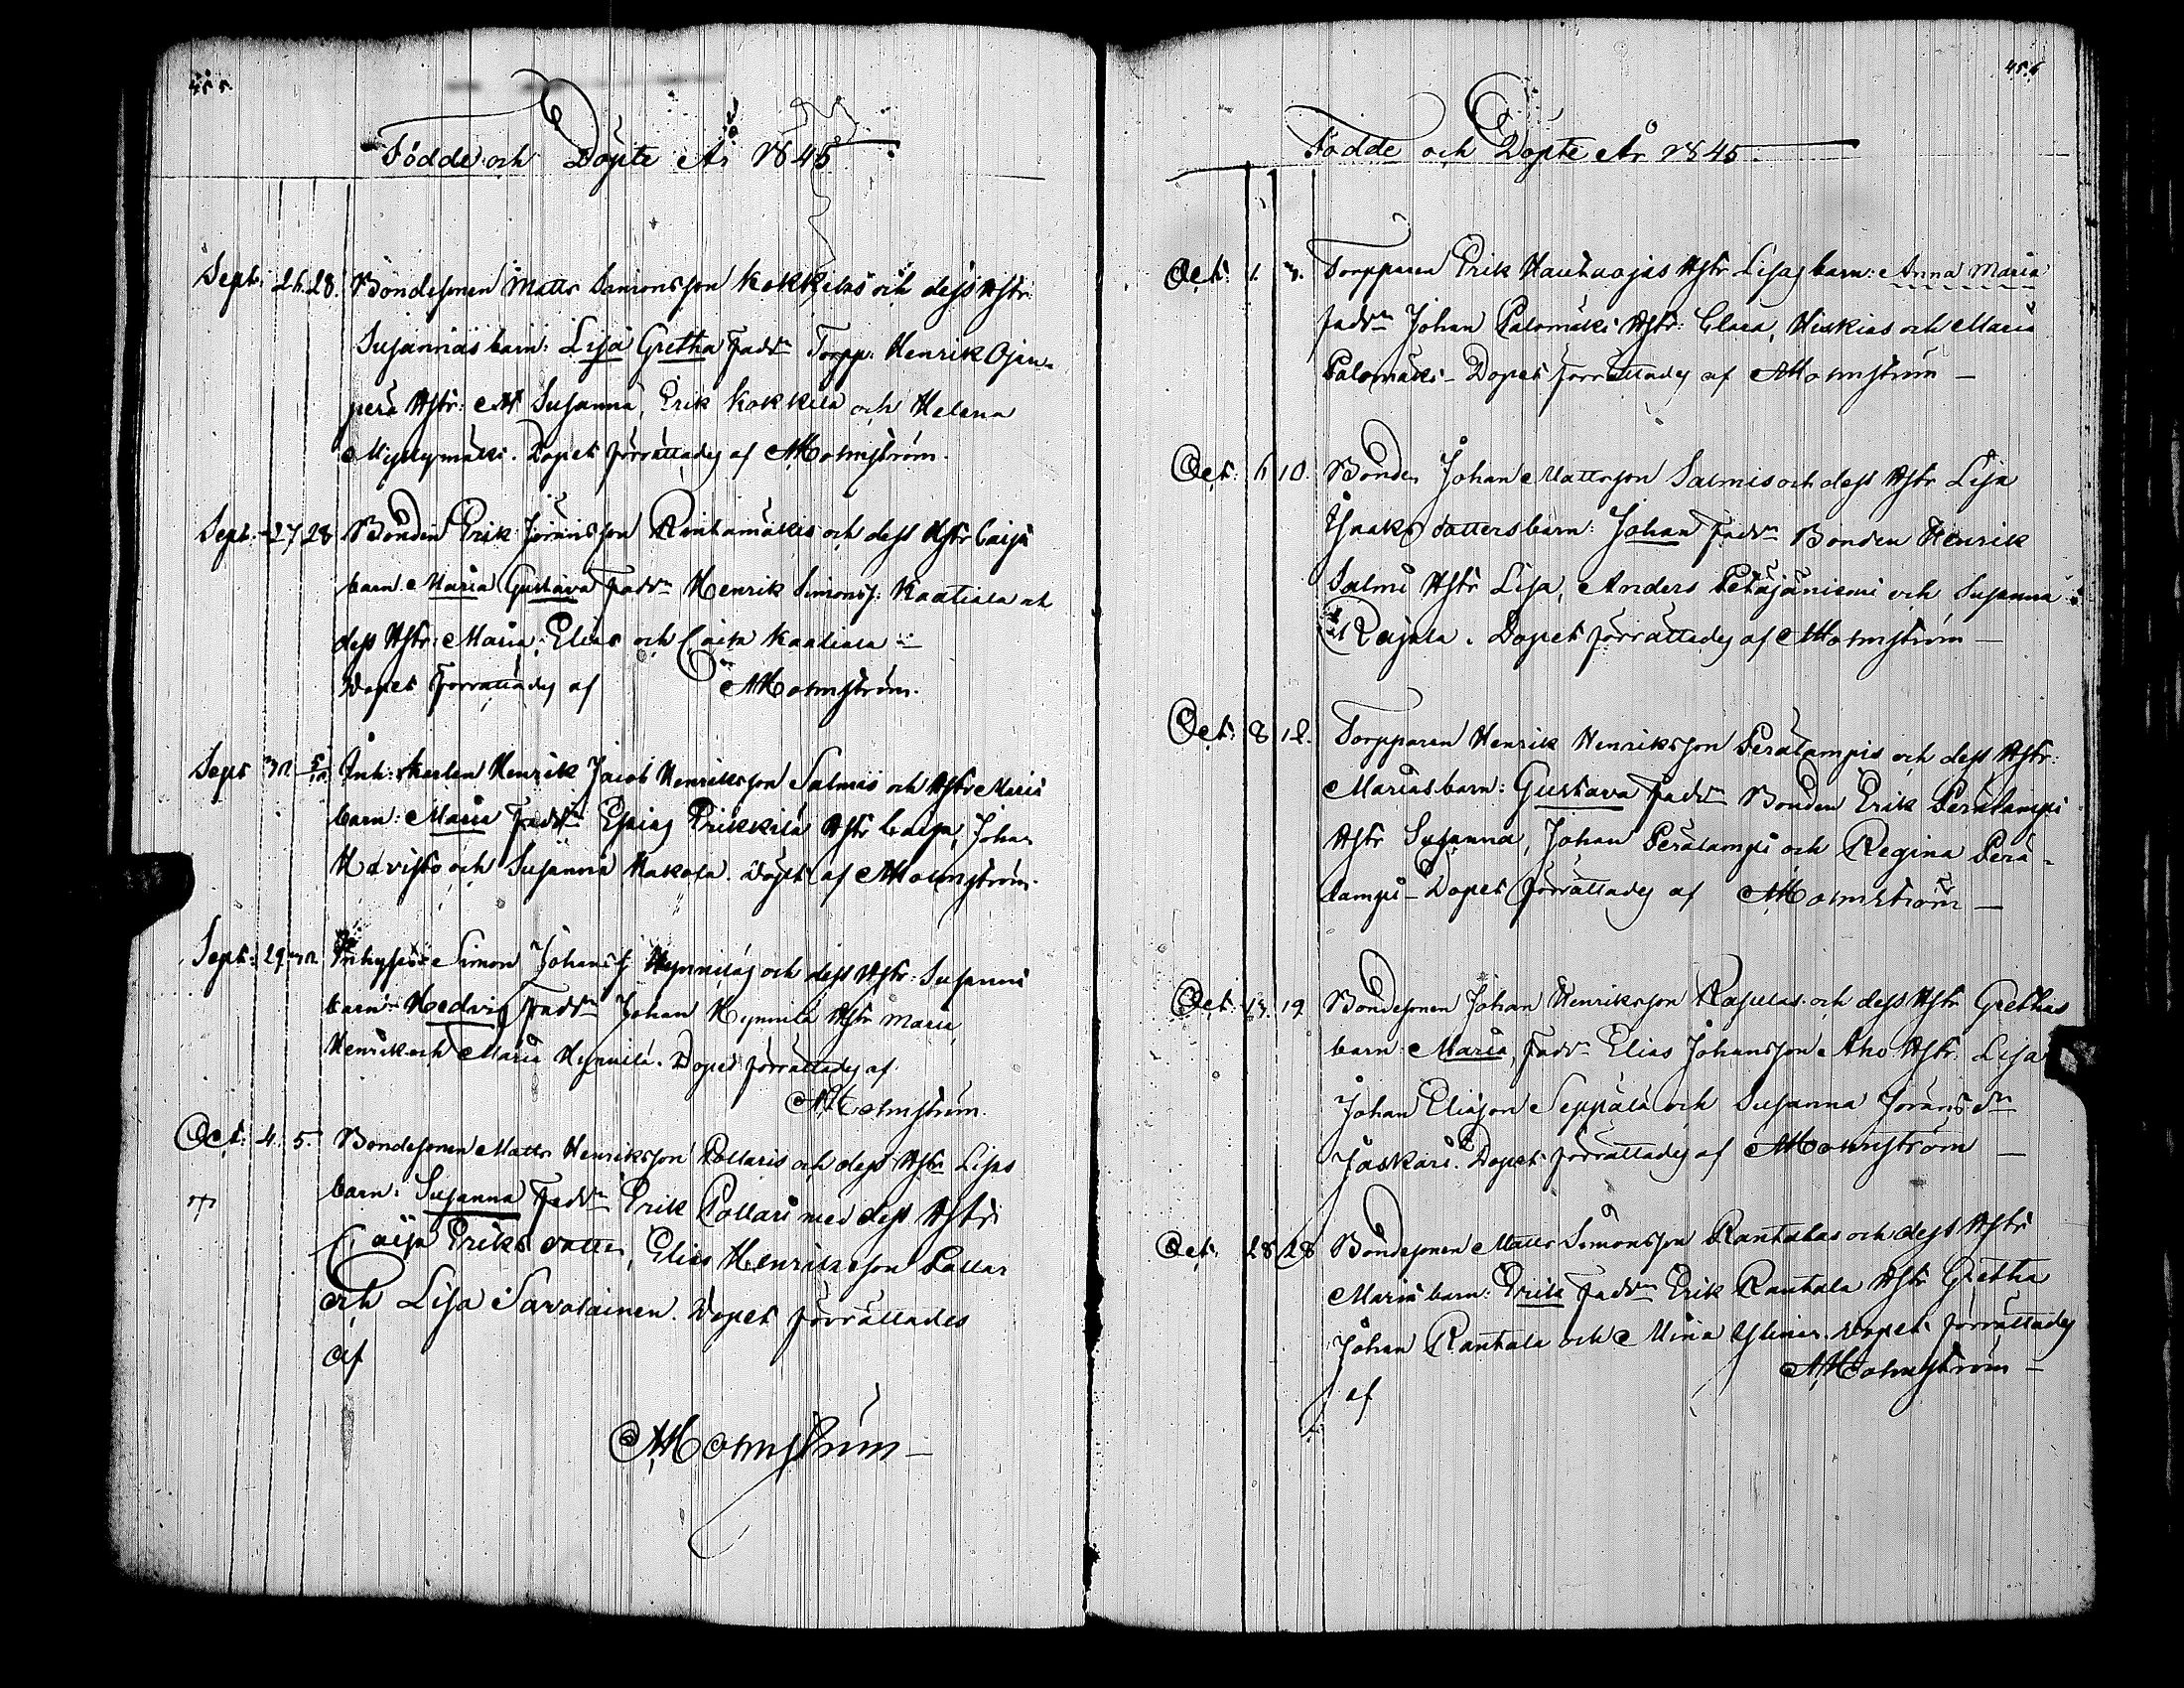 455
Födde och Döpte År 1845
Sept: 26. 28. Bondesonen Matts Simonsson Kokkilas och dess Hstr:
Susannas barn: Lisa Gretha Faddr Torpp: Henrik Ojan-
perä Hstr: Susanna, Erik Kokkila och Helena
Myllymäki. Dopet förrättades af AHolmström.
Sept. 27 28 Bonden Erik Jöransson Rintamäkis och dess Hstr Caisas
barn: Maria Gustava Faddr Henrik Simonss: Kaatiala och
dess Hstr: Maria, Elias och Caisa Kaatiala
Dopet förrättades af AHolmström.
Sept 30 5/10 Inh: Karlen Henrik Jacob Henriksson Salmis och Hstr Marias
barn: Maria Faddr Esaias Erikkilä Hstr Caisa, Johan
Havisto och Susanna Hakola. Döpt af AHolmström.
Sept: 29 30 Inhyses Simon Johanss Hynniläs och dess Hstr: Susannas
barn: Hedvig Faddr Johan Hynnilä Hstr Maria,
Henrik och Maria Hynnilä. Dopet förrättades af
AHolmström.
Oct: 4. 5. Bondesonen Matts Henriksson Pollaris och dess Hstr Lisas
barn: Susanna Faddr Erik Pollari med dess Hstr:
Caisa Eriksdotter, Elias Henriksson Pollari
och Lisa Savolainen. Dopet förrättades
af
AHolmström
456
Födde och Döpte År 1845.
Oct: 1. 3. Torpparen Erik Hauhaojas Hstr Lisas barn: Anna Maria
Faddr Johan Palomäki Hstr: Clara, Hiskias och Maria
Palomäki Dopet förrättades af AHolmström
Oct: 6 10. Bonden Johan Mattsson Salmis och dess Hstr Lisa
Isaksdotters barn: Johan Faddr Bonden Henrik
Salmi Hstr Lisa, Anders Petäjäniemi och Susanna
Rajala. Dopet förrättades af AHolmström
Oct: 8 12. Torpparen Henrik Henriksson Perälampis och dess Hstr:
Marias barn: Gustava Faddr Bonden Erik Perälampi
Hstr Susanna, Johan Perälampi och Regina Perä-
lampi Dopet förrättades af AHolmström
Oct: 13. 19 Bondesonen Johan Henriksson Rajalas och dess Hstr Grethas
barn: Maria, Faddr Elias Johansson Aho Hstr. Lisa
Johan Eliasson Seppälä och Susanna Jöransdr
Jåskari. Dopet förrättades af AHolmström
Oct: 28 28 Bondesonen Matts Simonsson Rantalas och dess Hstr
Marias barn: Erik Faddr Erik Rantala Hstr Gretha
Johan Rantala och Mina Dopet förrättades
af AHolmström